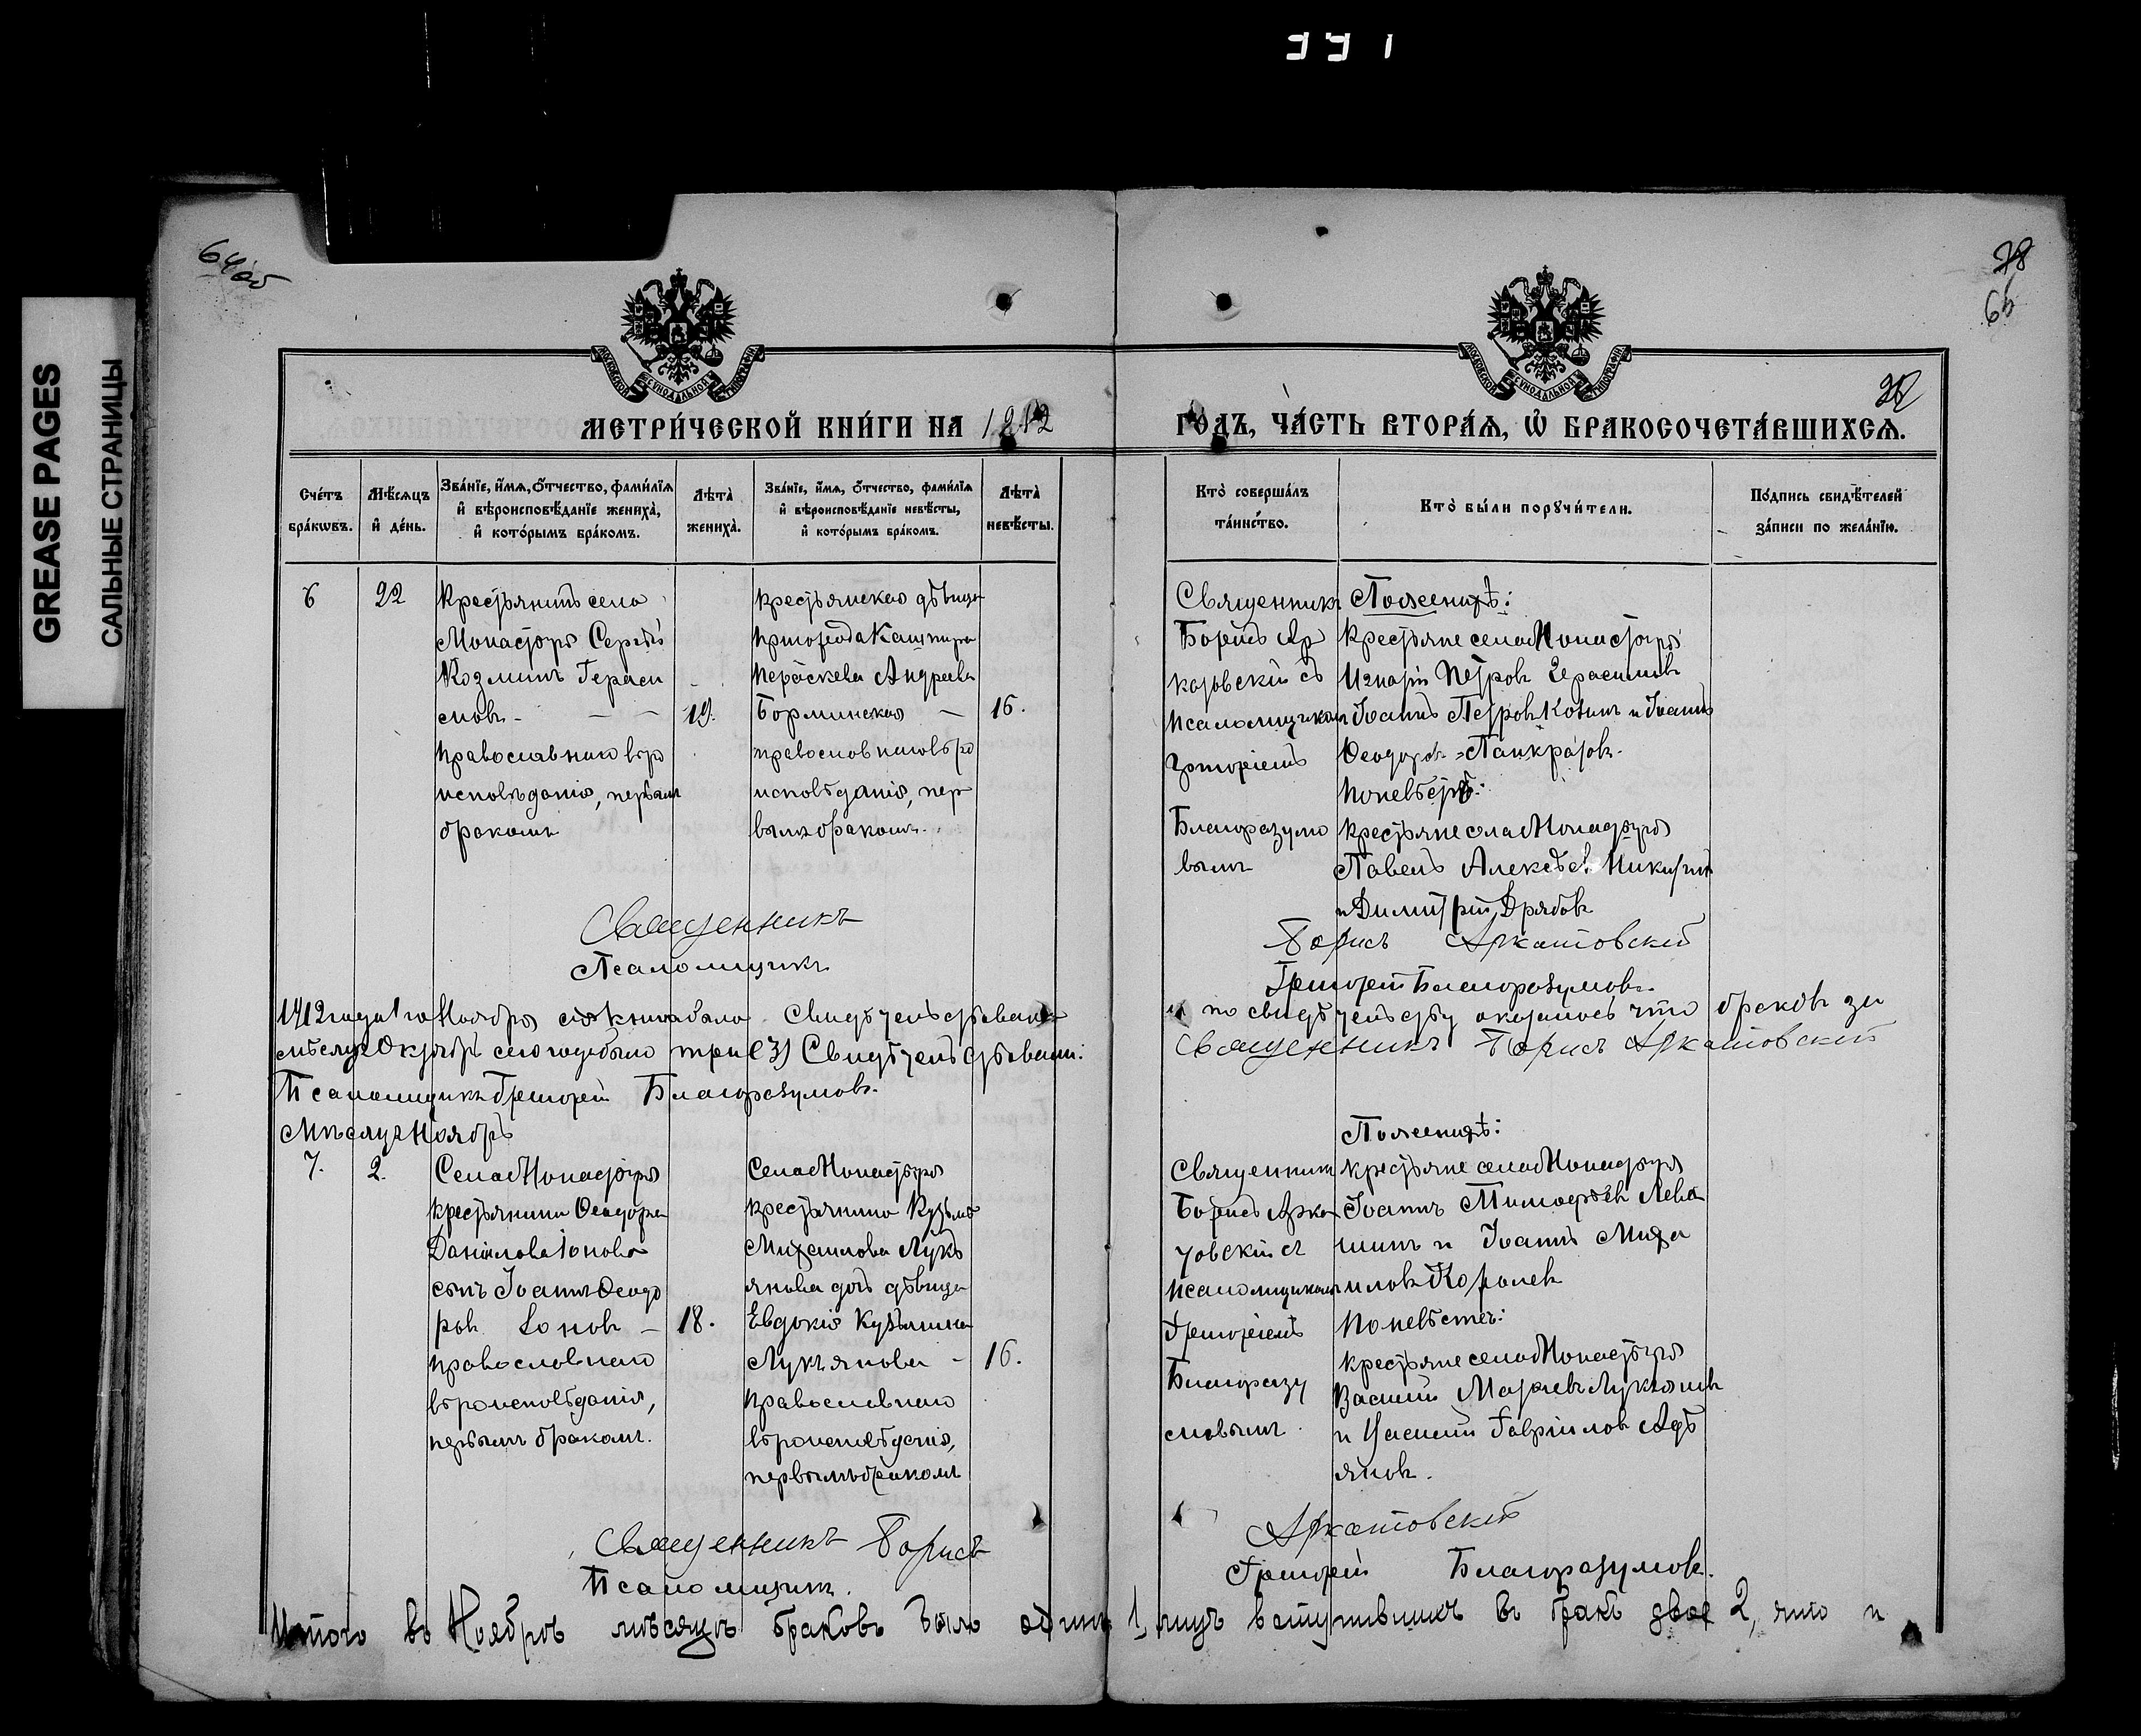 331
GREASE PAGES
САЛЬНЫЕ СТРАНИЦЫ
64 об
78
65
МОСКОВСКОЙ СѴНОДАЛЬНОЙ ТИПОГРАФІИ
МОСКОВСКОЙ СѴНОДАЛЬНОЙ ТИПОГРАФІИ
МЕТРИ́ЧЕСКОЙ КНИ́ГИ НА 1912
ГО́ДЪ, ЧА́СТЬ ВТОРА́Ѧ, Ѡ҆ БРАКОСОЧЕТА́ВШИХСѦ.
Сче́тъ бра́кѡвъ.
Мѣ́сѧцъ и҆ де́нь.
Зва́нїе, и҆́мѧ, ѻ҆́тчество, фами́лїѧ и҆ вѣроисповѣ́данїе жениха̀, и҆ кото́рымъ бра́комъ.
Лѣта̀ жениха̀.
Зва́нїе, и҆́мѧ, ѻ҆́тчество, фами́лїѧ и҆ вѣроисповѣ́данїе невѣ́сты, и҆ кото́рымъ бра́комъ.
Лѣта̀ невѣ́сты.
Кто̀ соверша́лъ та́инство.
Кто̀ бы́ли порꙋчи́тели.
По́дпись свидѣ́телей за́писи по жела́нїю.
6
22
Крестьянинъ села
Монастыря Сергѣй
Козминъ Гераси
мовъ —
православнаго вѣро
исповѣданія, первымъ
бракомъ
19.
крестьянская дѣвица
пригорода
Параскева Андреева
Борминская —
православнаго вѣро
исповѣданія, пер
вымъ бракомъ.
16.
Священникъ
Борисъ Ар
катовскій съ
псаломщикомъ
Григоріемъ
Благоразумо
вымъ
По женихѣ:
крестьяне села Монастыря
Игнатій Петровъ Герасимовъ
Іоаннъ Петровъ Козинъ и Іоаннъ
Ѳеодоровъ Панкратовъ.
По невѣстѣ:
крестьяне села Монастыря
Павелъ Алексѣевъ Никитинъ
и Димитрій Дрябовъ
Священникъ
Борисъ Аркатовскій
Псаломщикъ
Григорій Благоразумовъ.
1912 года 1го Ноября сія книга была Свидѣтельствована
и по свидѣтельству оказалось что браковъ за
мѣсяцъ Октябрь сего года было три (3) Свидѣтельствовали:
Священникъ Борисъ Аркатовскій
Псаломщикъ Григорій Благоразумовъ.
Мѣсяцъ Ноябрь
7.
2.
Села Монастыря
крестьянина Ѳеодора
Данілова Іонова
сынъ Іоаннъ Ѳеодо
ровъ Іоновъ —
православнаго
вѣроисповѣданія,
первымъ бракомъ.
18.
Села Монастыря
крестьянина Кузьмы
Михаилова Лукь
янова дочь дѣвица
Евдокія Кузьмина
Лукьянова —
православнаго
вѣроисповѣданія,
первымъ бракомъ
16.
Священникъ
Борисъ Арка
товскій съ
псаломщикомъ
Григоріемъ
Благоразу
мовымъ
По женихѣ:
крестьяне села Монастыря
Іоаннъ Тимофѣевъ Лева
шинъ и Іоаннъ Миха
иловъ Королевъ
По невѣстѣ:
крестьяне села Монастыря
Василій Лукьяновъ
и Василій Гавріиловъ
Священникъ Борисъ
Аркатовскій
Псаломщикъ.
Григорій Благоразумовъ.
Итого въ Ноябрѣ мѣсяцѣ браковъ было одинъ 1, лицъ вступившихъ въ бракъ двое 2, что и